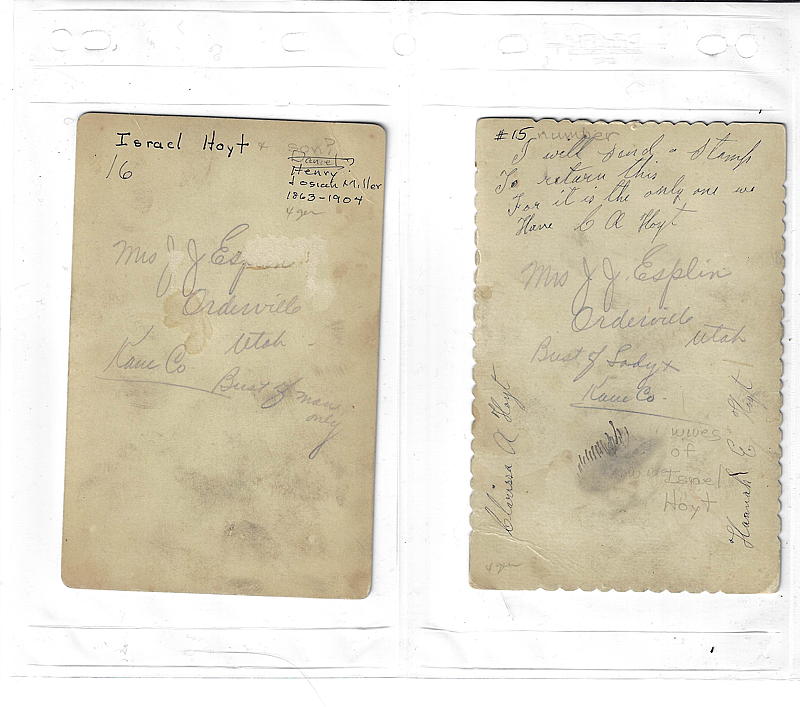 Israel Hoyt + son?
16
Daniel?
Henry
Josiah Miller
1863-1904
4 gen
Mrs J J Esplin
Orderville
Utah -
Kane Co
Bust of man
only
#15 number
I will send a Stamp
To return this
For it is the only one we
Have C A Hoyt
Mrs J J. Esplin
Orderville
Utah
Bust of Lady x
Kane Co.
Clarissa A Hoyt
wives
of
Israel
Hoyt
Hannah E Hoyt
4 gen